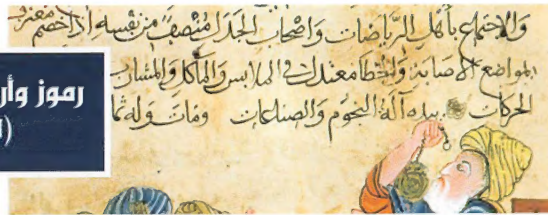 والاجتماع بأهل الرياضات واصحاب الجدل منصف من نفسه اذا خصم معترف
بمواضع الاصابة والخطأ معتدل في الملابس والمأكل والمشارب
الحركات بيده آلة النجوم والصناعات ومات وله ثما
رموز وأر